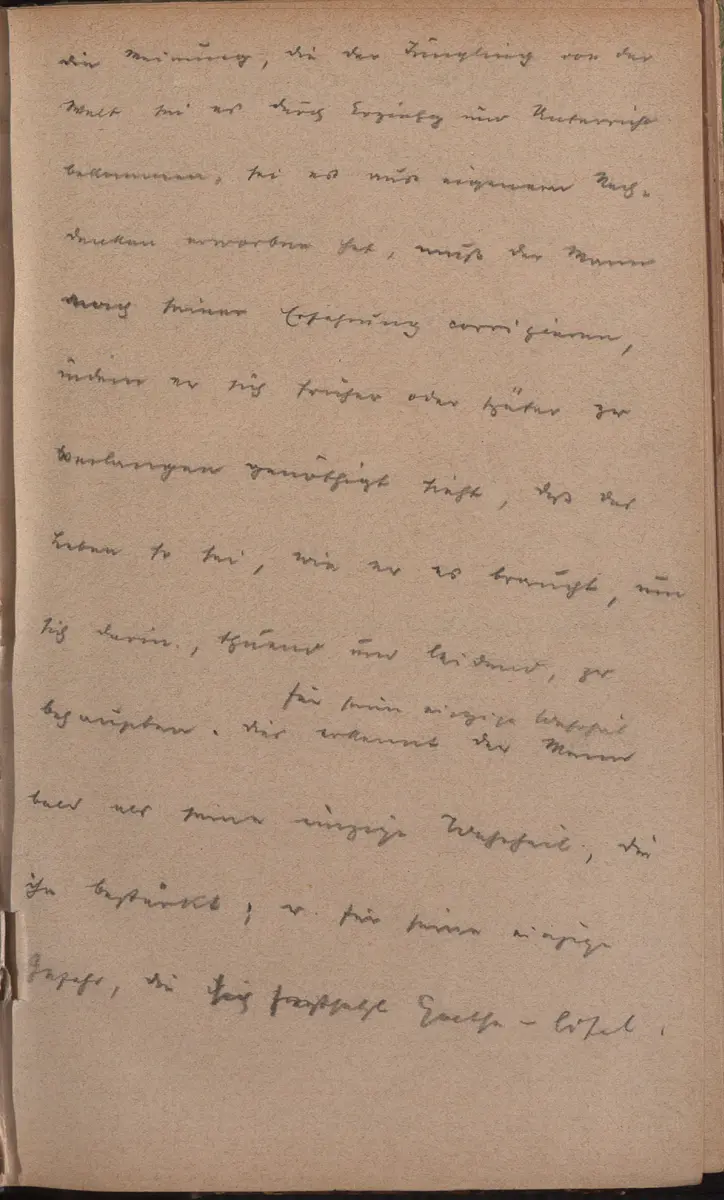 die Meinung, die der Jüngling von der
Welt sei es durch Erziehg und Unterricht
bekommen, sei es aus eigenem Nach-
denken erworben hat, muß der Mann
nach seiner Erfahrung corrigieren,
indem er sich früher oder später zu
verlangen genöthigt sieht, daß das
Leben so sei, wie er es braucht, um
sich darin, thuend und leidend, zu
für seine einzige Wahrheit
behaupten. Dies erkennt der Mann
bald als seine einzige Wahrheit, die
ihn bestärkt; u. für seine einzige
Gefahr, die sich Goethe –